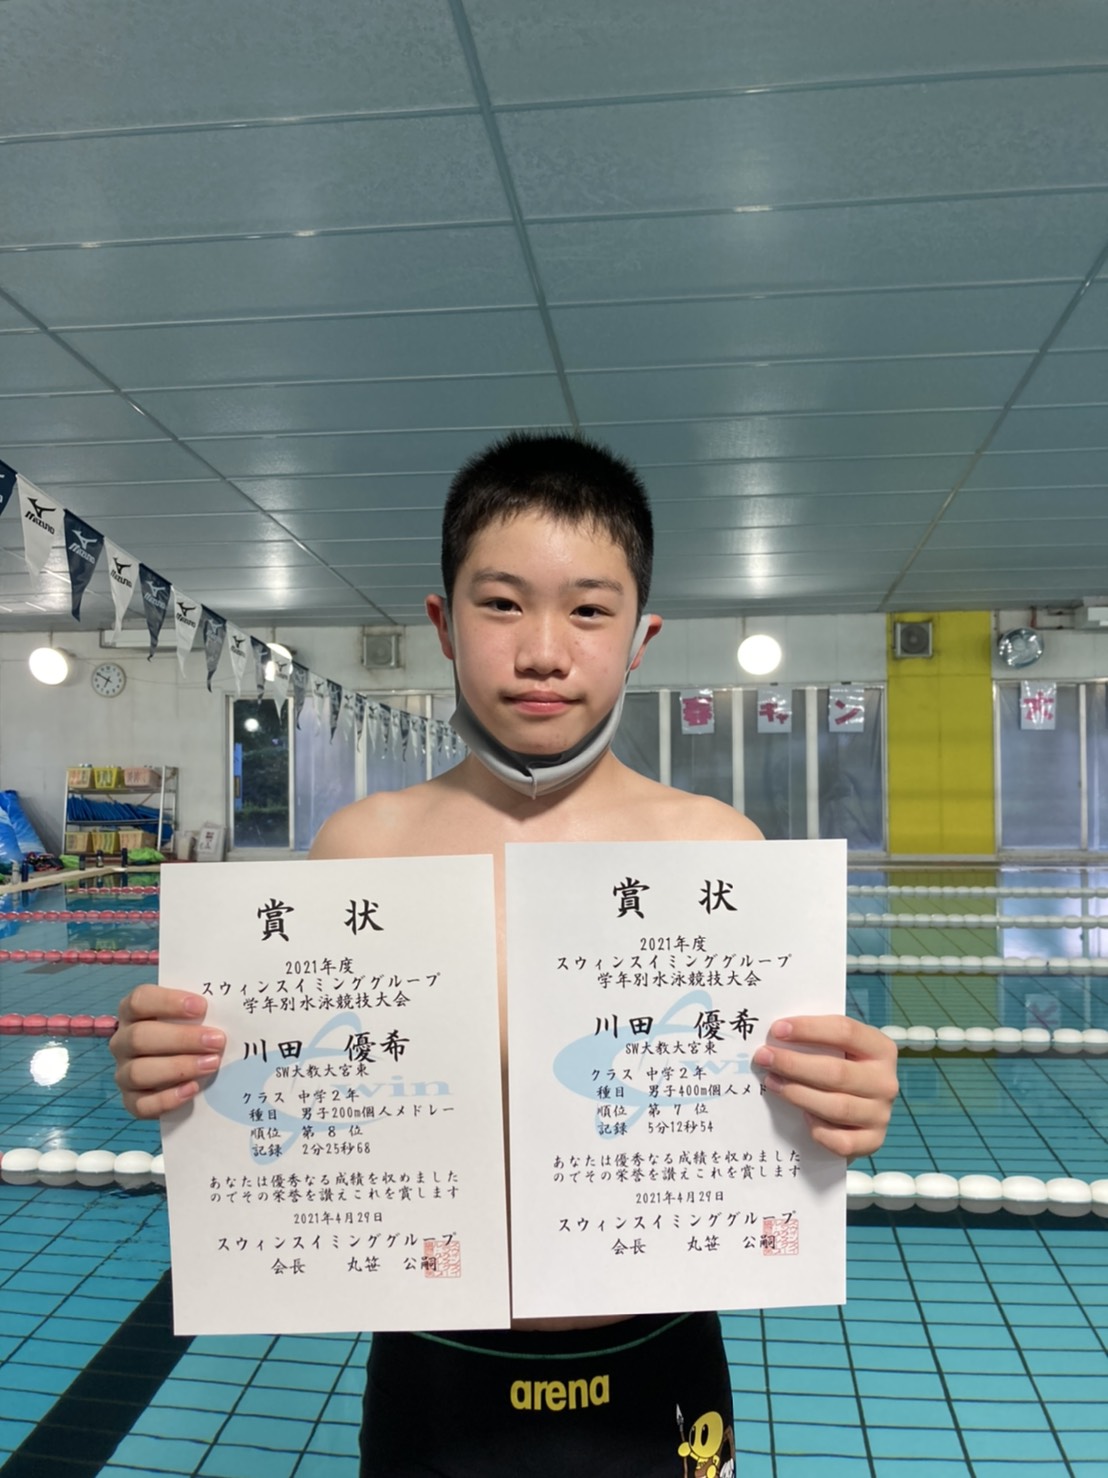 MIZUNO
MIZUNO
MIZUNO
MIZUNO
春
キャ
ン
水
賞 状
2021年度
スウィンスイミンググループ
学年別水泳競技大会
川田 優希
SW大教大宮東
win
クラス 中学2年
種目 男子200m個人メドレー
順位 第 8 位
記録 2分25秒68
あなたは優秀なる成績を収めました
のでその栄誉を讃えこれを賞します
2021年4月29日
スウィンスイミンググループ
会長 丸笹 公嗣
賞 状
2021年度
スウィンスイミンググループ
学年別水泳競技大会
川田 優希
SW大教大宮東
win
クラス 中学2年
種目 男子400m個人メド
順位 第 7 位
記録 5分12秒54
あなたは優秀なる成績を収めました
のでその栄誉を讃えこれを賞します
2021年4月29日
スウィンスイミンググループ
会長 丸笹 公嗣
arena